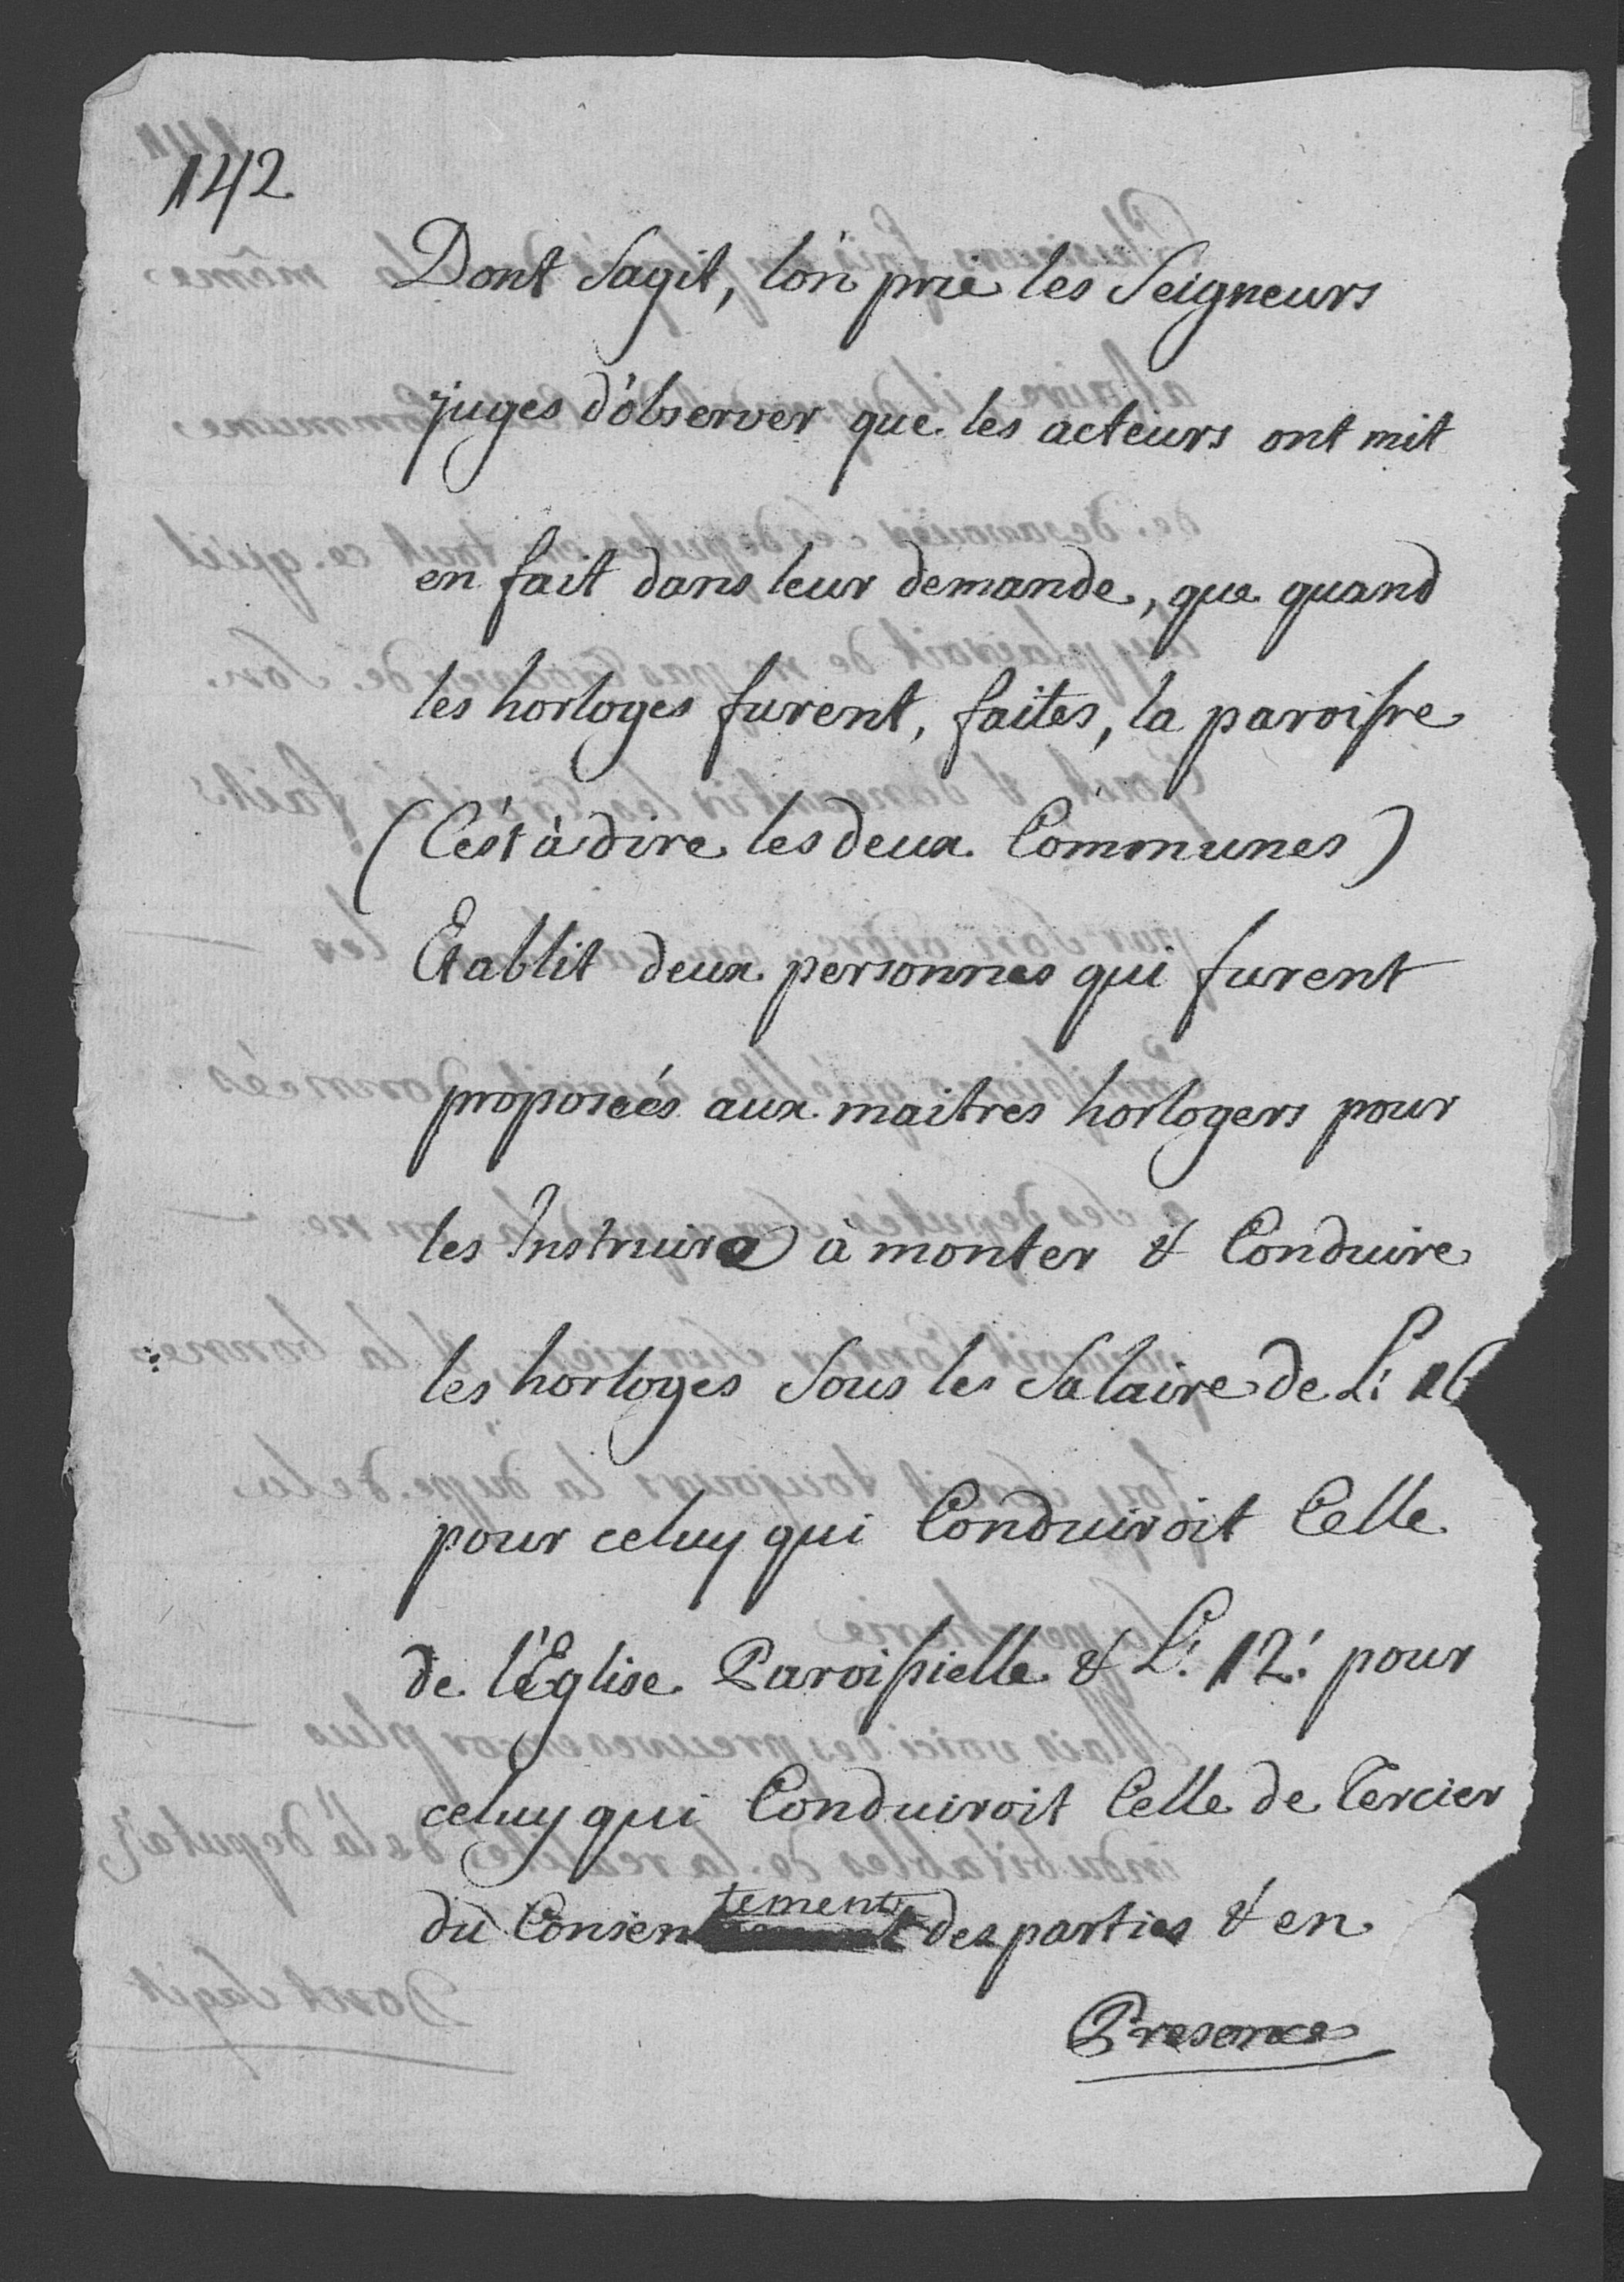 142
Dont Sagit, lòn prie les Seigneurs
juges dòbserver que les acteurs ont mit
en fait dans leur demande, que quand
les horloges furent, faites, la paroisse
(Cést à dire les deux Communes)
Etablit deux personnes qui furent
proposéés aux maitres horlogers pour
les Instruire à monter & Conduire
les horloges Sous le Salaire de L: 16
pour celuy qui Conduiroit Celle
de l'Eglise Paroissielle & L: 12: pour
celuy qui Conduiroit Celle de Tercier
du Consentement des parties & en
Presence